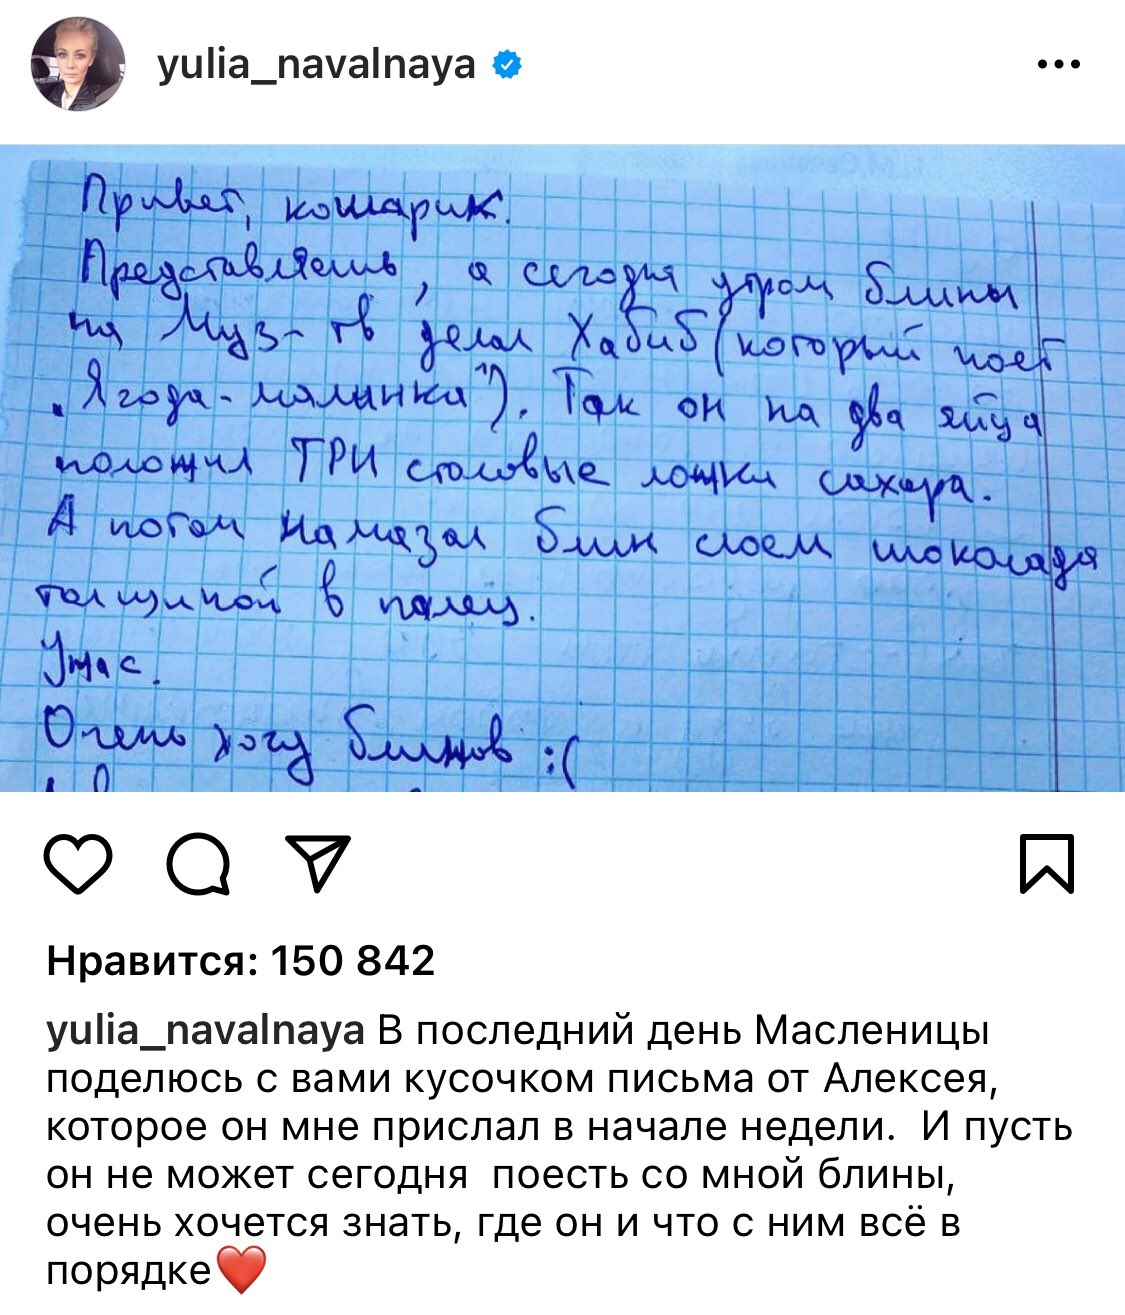 yulia_navalnaya
Привет, кошарик.
Представляешь, а сегодня утром блины
на Муз-тв делал Хабиб (который поет
„Ягода-малинка"). Так он на два яйца
положил ТРИ столовые ложки сахара.
А потом намазал блин слоем шоколада
толщиной в палец.
Ужас.
Очень хочу блинов :(
Нравится: 150 842
yulia_navalnaya В последний день Масленицы
поделюсь с вами кусочком письма от Алексея,
которое он мне прислал в начале недели. И пусть
он не может сегодня поесть со мной блины,
очень хочется знать, где он и что с ним всё в
порядке❤️